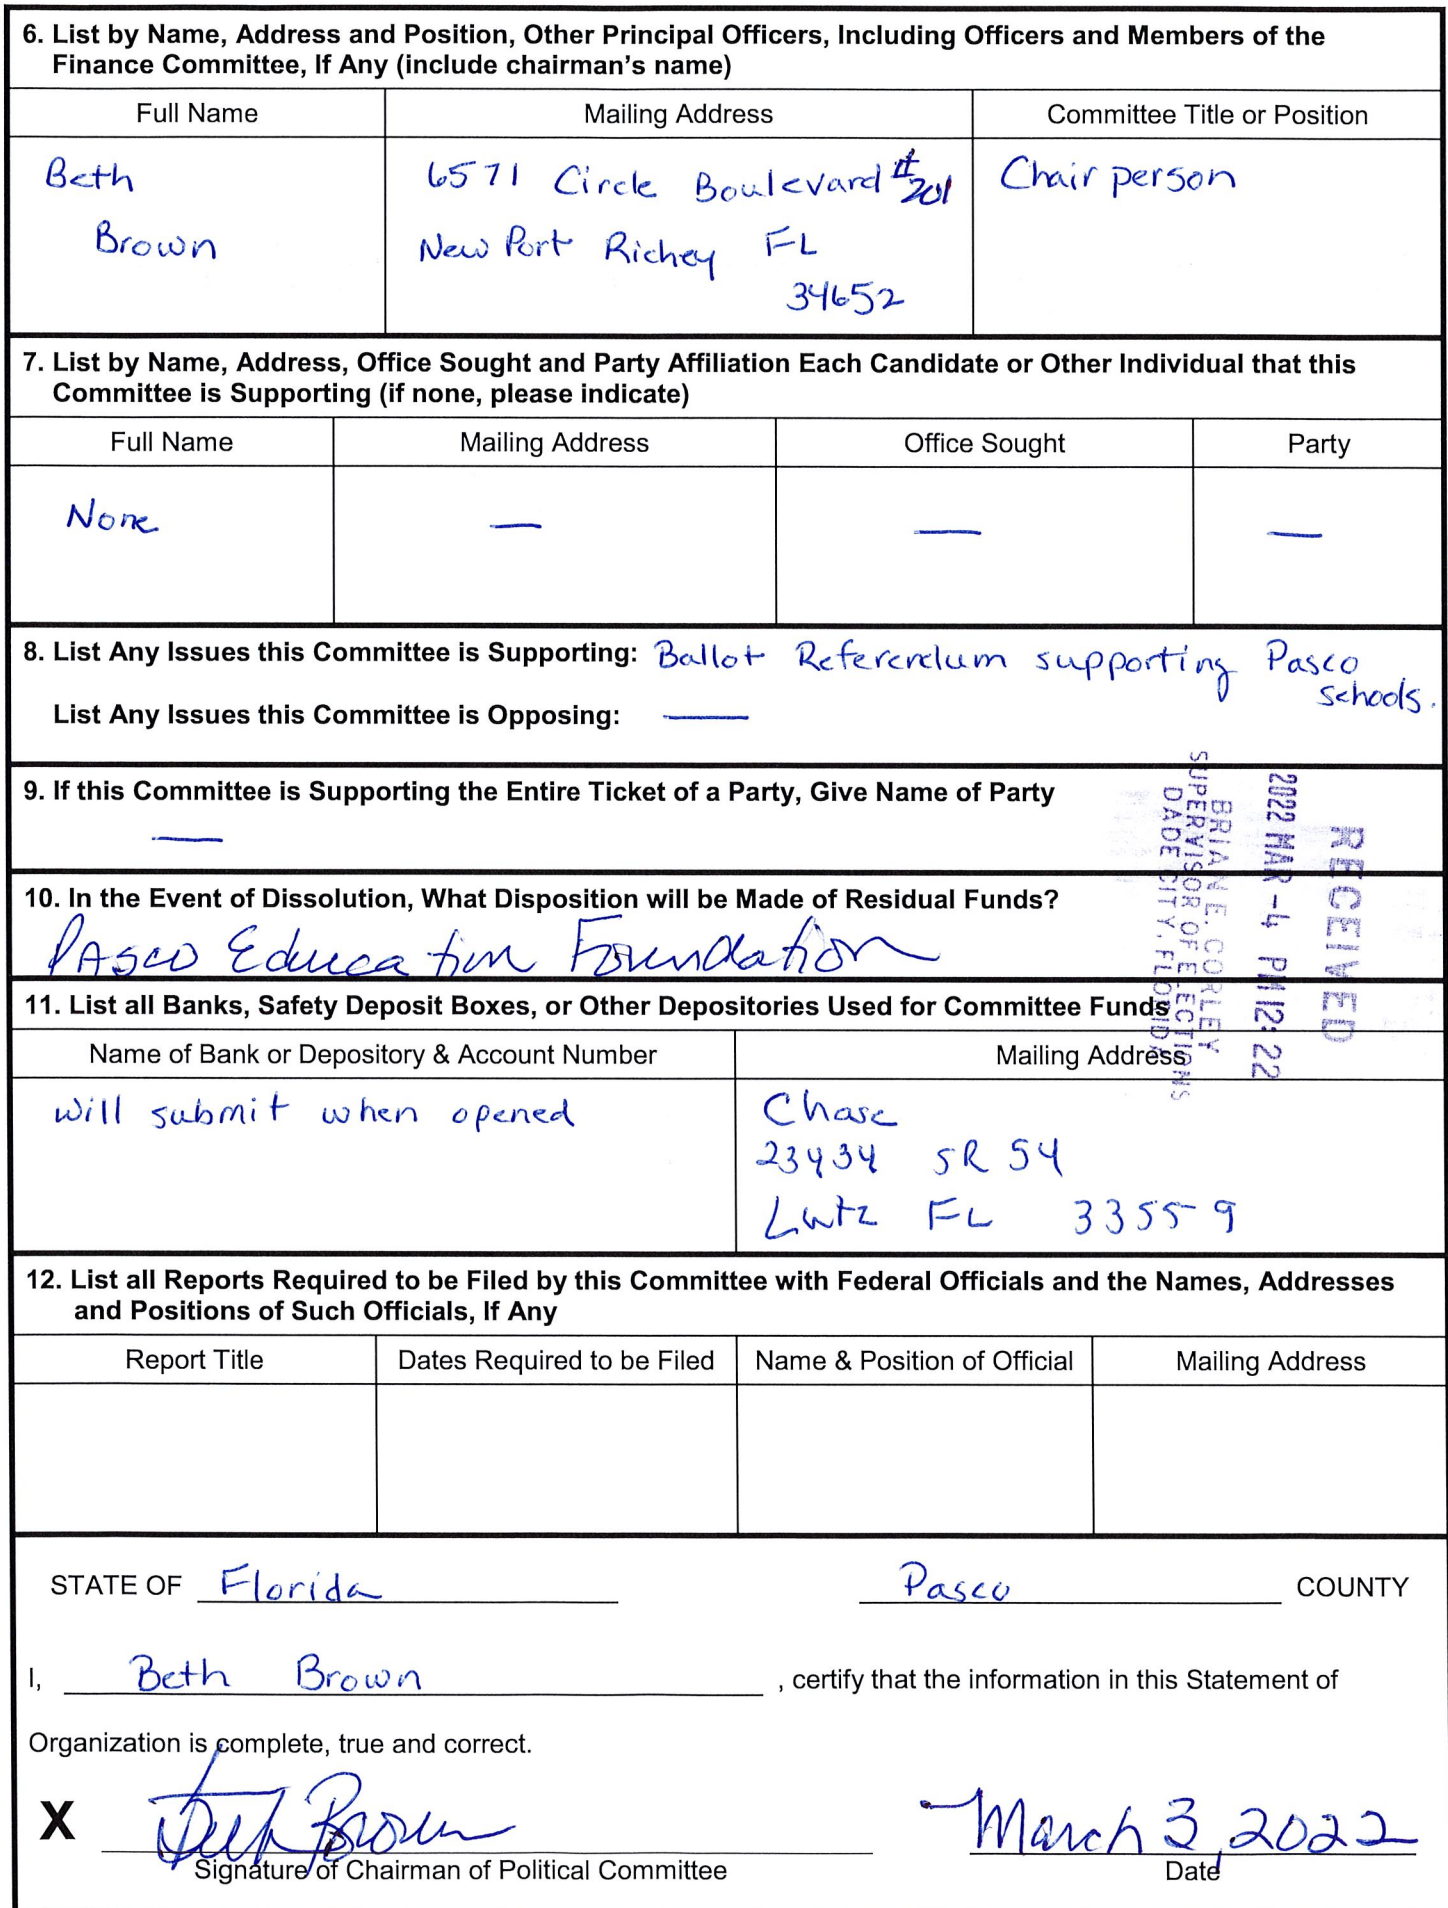 6. List by Name, Address and Position, Other Principal Officers, Including Officers and Members of the
Finance Committee, If Any (include chairman's name)
Full Name Mailing Address Committee Title or Position
Beth 6571 Circle Boulevard #201 Chairperson
Brown New Port Richey FL
34652
7. List by Name, Address, Office Sought and Party Affiliation Each Candidate or Other Individual that this
Committee is Supporting (if none, please indicate)
Full Name Mailing Address Office Sought Party
None — — —
8. List Any Issues this Committee is Supporting: Ballot Referendum supporting Pasco
schools.
List Any Issues this Committee is Opposing: —
9. If this Committee is Supporting the Entire Ticket of a Party, Give Name of Party
—
RECEIVED
2022 MAR -4 PM 12: 22
BRIAN E. CORLEY
SUPERVISOR OF ELECTIONS
DADE CITY, FLORIDA
10. In the Event of Dissolution, What Disposition will be Made of Residual Funds?
Pasco Education Foundation
11. List all Banks, Safety Deposit Boxes, or Other Depositories Used for Committee Funds
Name of Bank or Depository & Account Number Mailing Address
will submit when opened Chase
23434 SR 54
Lutz FL 33559
12. List all Reports Required to be Filed by this Committee with Federal Officials and the Names, Addresses
and Positions of Such Officials, If Any
Report Title Dates Required to be Filed Name & Position of Official Mailing Address
STATE OF Florida Pasco COUNTY
I, Beth Brown , certify that the information in this Statement of
Organization is complete, true and correct.
X Beth Brown March 3, 2022
Signature of Chairman of Political Committee Date